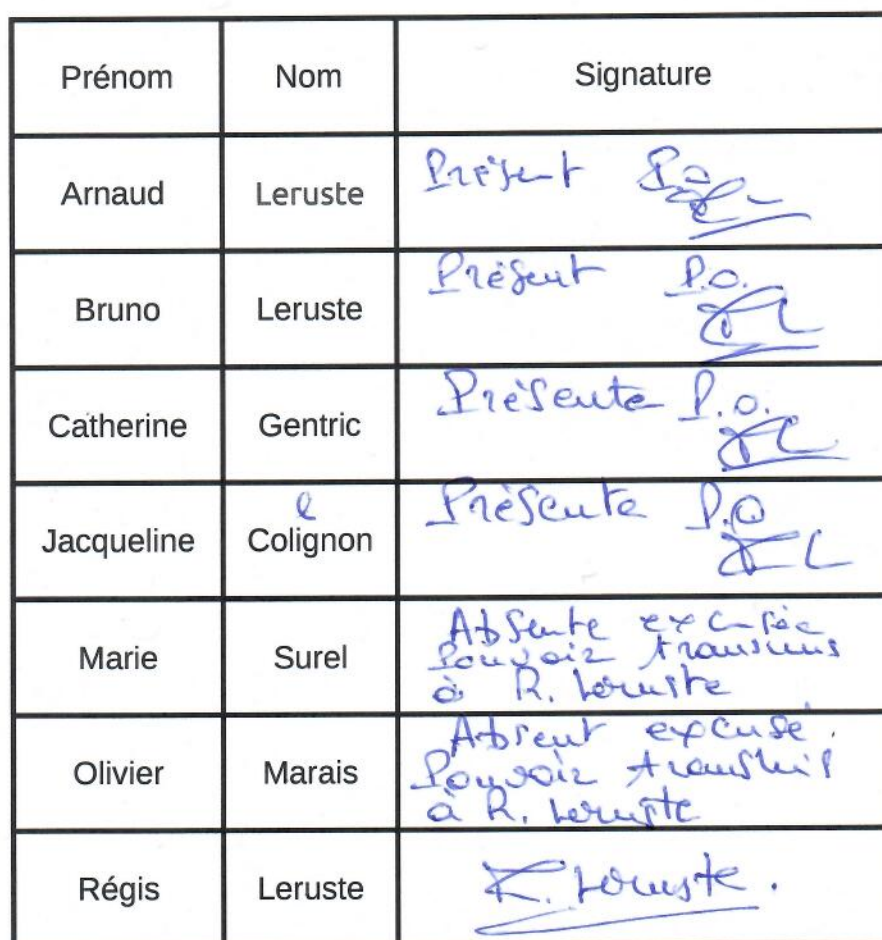 Prénom Nom Signature
Arnaud Leruste Présent P.O.
Bruno Leruste Présent P.O.
Catherine Gentric Présente P.O.
l
Jacqueline Colignon Présente P.O
Absente excusée
Marie Surel Pouvoir transmis
à R. Leruste
Absent excusé.
Olivier Marais Pouvoir transmis
à R. Leruste
Régis Leruste R. Leruste.